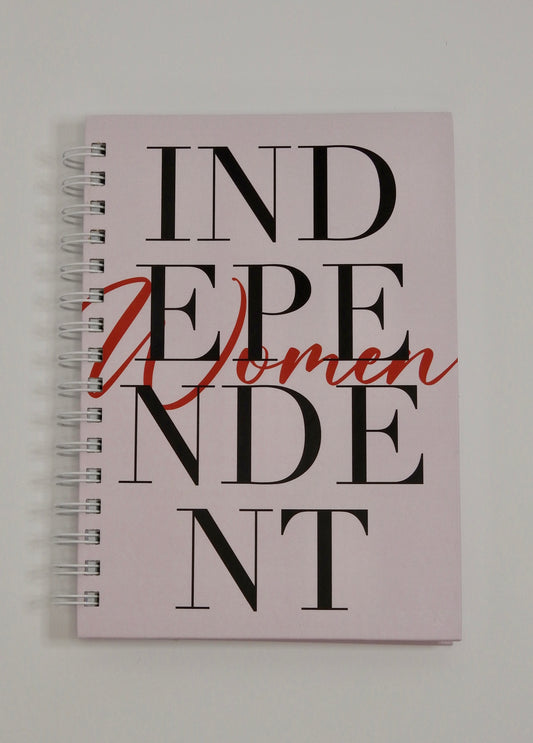 IND
EPE
Women
NDE
NT